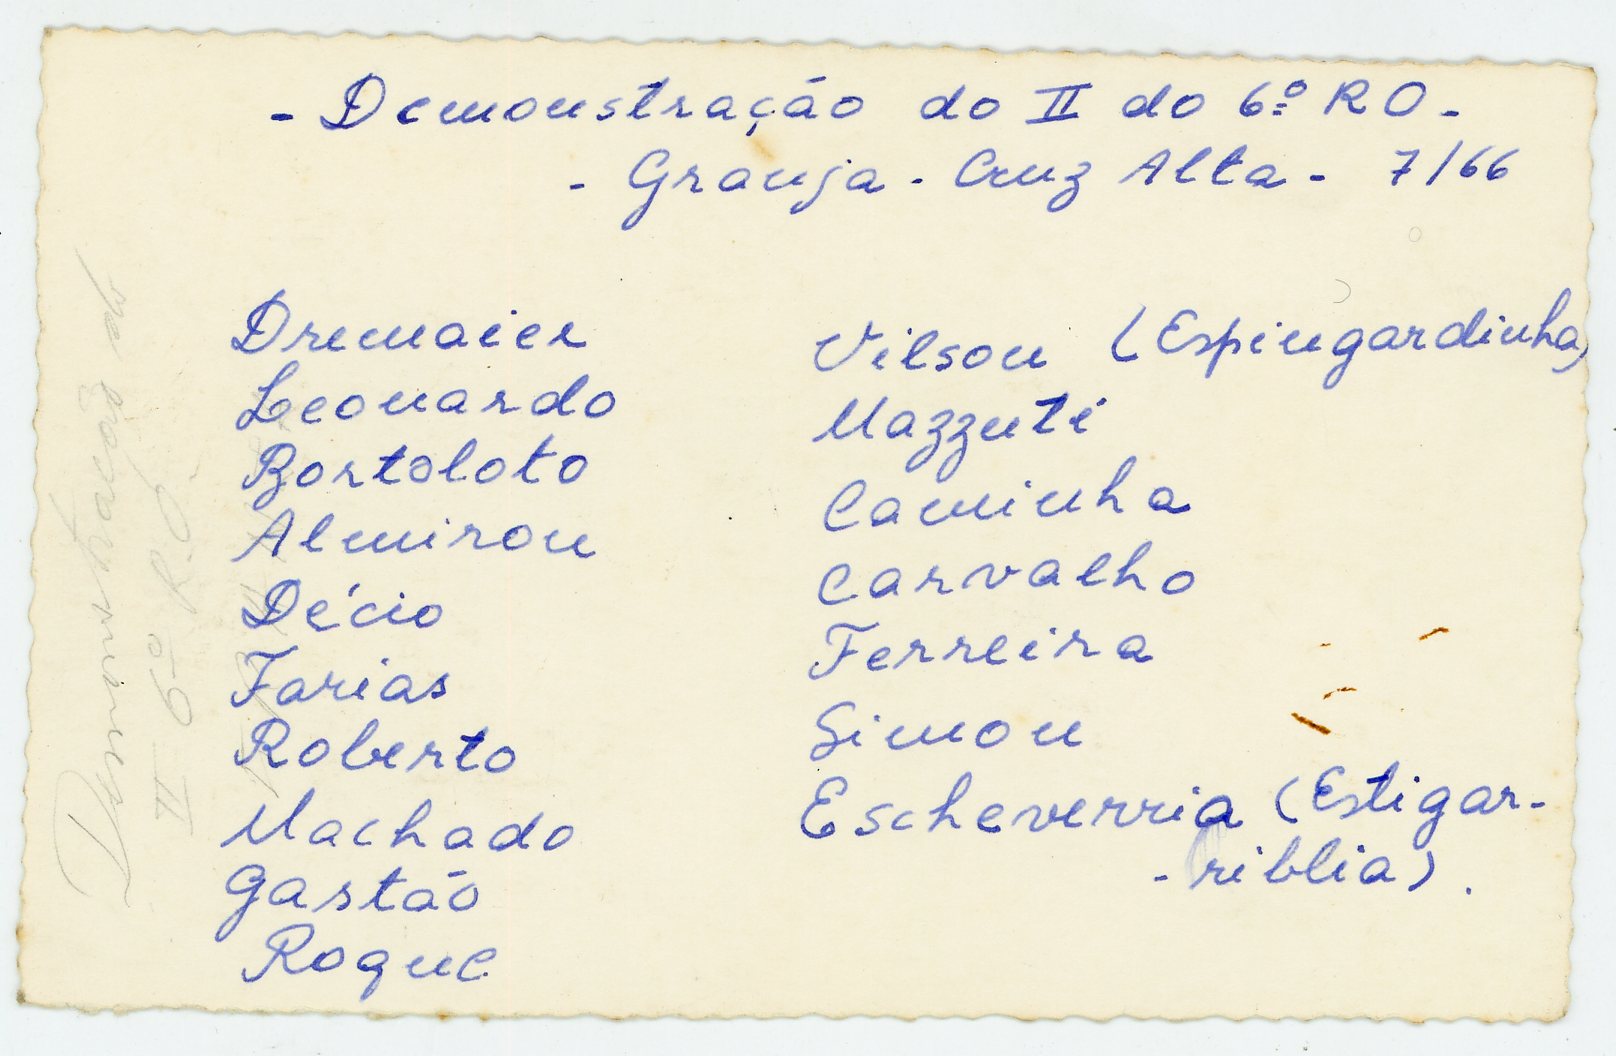 - Demonstração do II do 6º RO -
- Granja - Cruz Alta - 7/66
Dremaier
Leonardo
Bortoloto
Almiron
Décio
Farias
Roberto
Machado
Gastão
Roque
Vilson (Espingardinha)
Mazzuti
Caminha
Carvalho
Ferreira
Simon
Escheverria (Estigar-
-riblia).
Demonstração do
II 6º R.O.